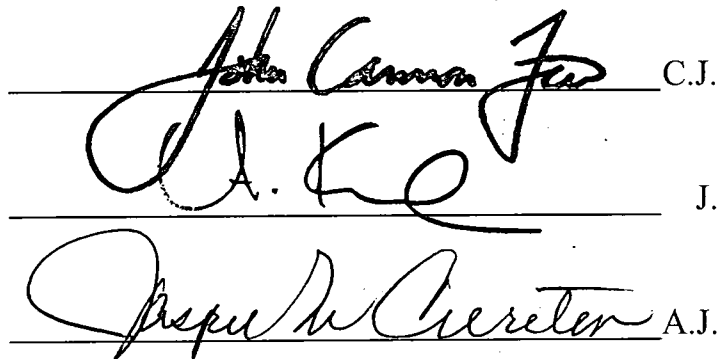 John Cannon Few C.J.
A. K J.
Jasper M Cureton A.J.